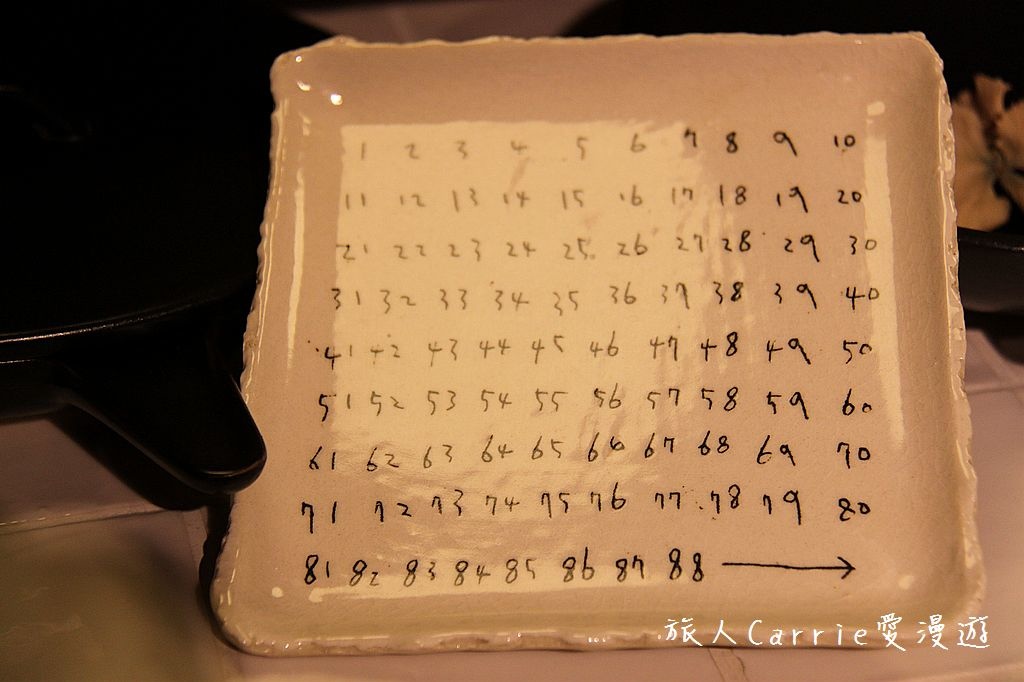 1 2 3 4 5 6 7 8 9 10
11 12 13 14 15 16 17 18 19 20
21 22 23 24 25 26 27 28 29 30
31 32 33 34 35 36 37 38 39 40
41 42 43 44 45 46 47 48 49 50
51 52 53 54 55 56 57 58 59 60
61 62 63 64 65 66 67 68 69 70
71 72 73 74 75 76 77 78 79 80
81 82 83 84 85 86 87 88 →
旅人Carrie愛漫遊